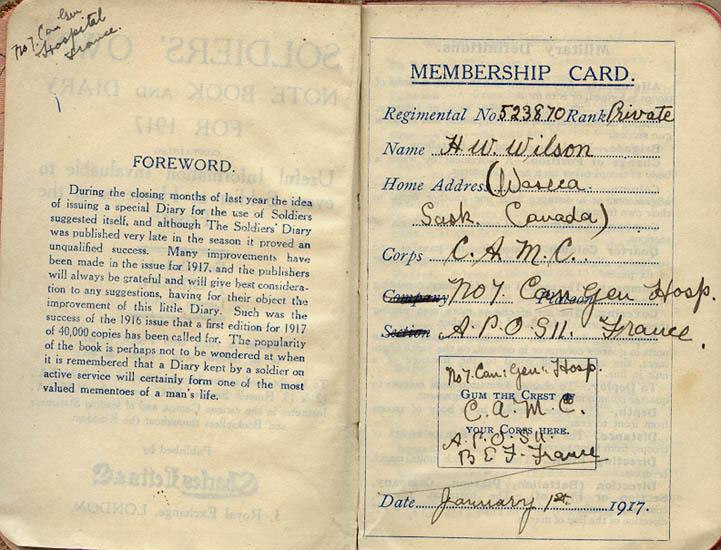 No 7. Can Gen
Hospital
France.
FOREWORD.
During the closing months of last year the idea
of issuing a special Diary for the use of Soldiers
suggested itself, and although 'The Soldiers' Diary
was published very late in the season it proved an
unqualified success. Many improvements have
been made in the issue for 1917, and the publishers
will always be grateful and will give best considera-
tion to any suggestions, having for their object the
improvement of this little Diary. Such was the
success of the 1916 issue that a first edition for 1917
of 40,000 copies has been called for. The popularity
of the book is perhaps not to be wondered at when
it is remembered that a Diary kept by a soldier on
active service will certainly form one of the most
valued mementoes of a man's life.
MEMBERSHIP CARD.
Regimental No. 523870 Rank Private
Name H W. Wilson
Home Address (Waseca
Sask. Canada)
Corps C. A. M. C.
Company No 7 Can Gen Hosp. Platoon
Section A. P. O. S 11. France.
No 7. Can: Gen: Hosp.
GUM THE CREST OF
C. A. M. C.
YOUR CORPS HERE.
A. P. O. S 11.
B E F. France
Date January 1st 1917.